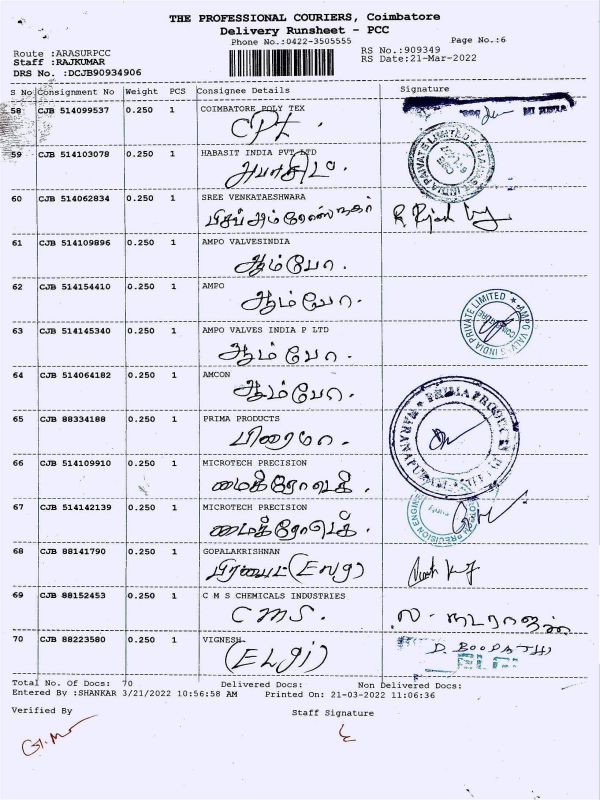 THE PROFESSIONAL COURIERS, Coimbatore
Delivery Runsheet - PCC
Phone No.:0422-3505555
Page No.:6
Route :ARASURPCC
RS No.:909349
Staff :RAJKUMAR
RS Date:21-Mar-2022
DRS No. :DCJB90934906
S No Consignment No Weight PCS Consignee Details Signature
58 CJB 514099537 0.250 1 COIMBATORE POLY TEX
CPT.
59 CJB 514103078 0.250 1 HABASIT INDIA PVT LTD
60 CJB 514062834 0.250 1 SREE VENKATAESHWARA
61 CJB 514109896 0.250 1 AMPO VALVESINDIA
ஆம்போ.
62 CJB 514154410 0.250 1 AMPO
ஆம்போ.
AMPO VALVES INDIA PRIVATE LIMITED
COIMBATORE
63 CJB 514145340 0.250 1 AMPO VALVES INDIA P LTD
ஆம்போ.
64 CJB 514064182 0.250 1 AMCON
ஆம்போ.
65 CJB 88334188 0.250 1 PRIMA PRODUCTS
பிரைமா.
66 CJB 514109910 0.250 1 MICROTECH PRECISION
மைக்ரோடெக்.
67 CJB 514142139 0.250 1 MICROTECH PRECISION
மைக்ரோடெக்.
68 CJB 88141790 0.250 1 GOPALAKRISHNAN
69 CJB 88152453 0.250 1 C M S CHEMICALS INDUSTRIES
CMS.
70 CJB 88223580 0.250 1 VIGNESH
(ELGI)
D. BOOPATHI
ELGI
Total No. Of Docs: 70 Delivered Docs: Non Delivered Docs:
Entered By :SHANKAR 3/21/2022 10:56:58 AM Printed On: 21-03-2022 11:06:36
Verified By
Staff Signature